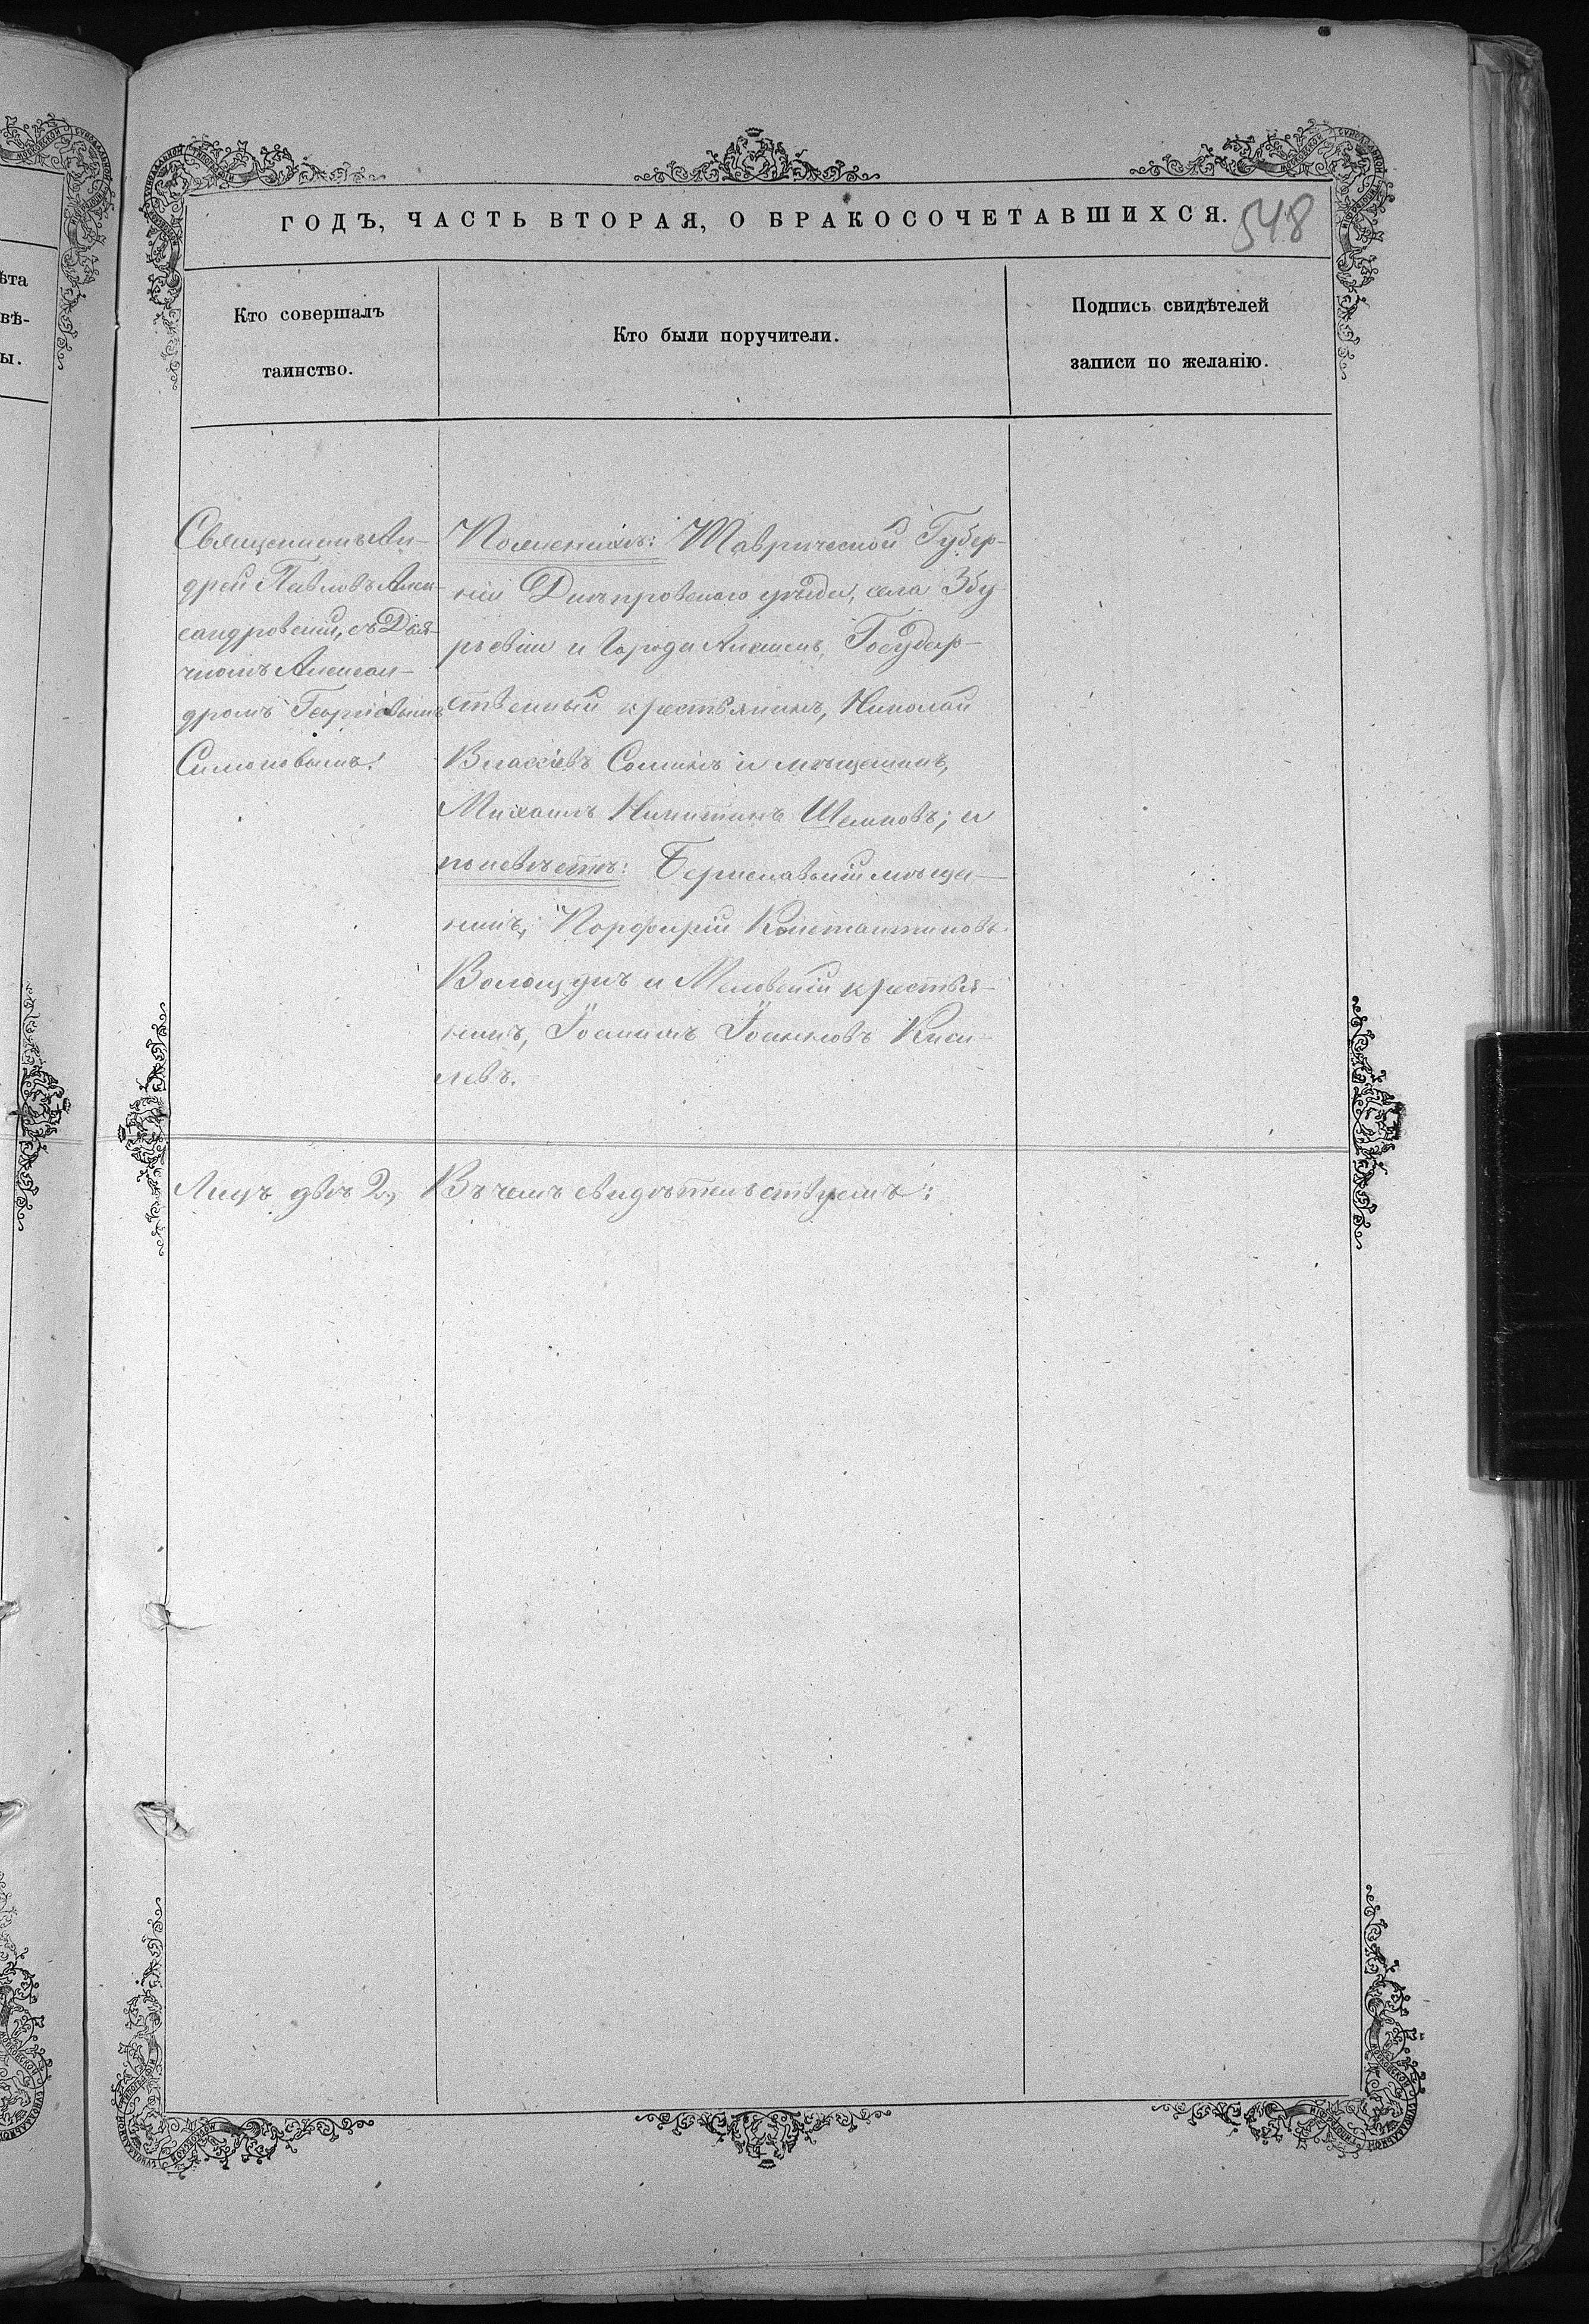 ГОДЪ, ЧАСТЬ ВТОРАЯ, О БРАКОСОЧЕТАВШИХСЯ.
548
Кто совершалъ
таинство.
Кто были поручители.
Подпись свидѣтелей
записи по желанію.
ѣта
вѣ-
ы.
Священникъ Ан-
дрей Павловъ Алек-
сандровскій, съ Дья-
чкомъ Алексан-
дромъ Георгіевымъ
Симоновымъ.
По женихѣ: Таврической Губер-
ніи Днѣпровскаго уѣзда, села Збу-
рьевки и города Алешекъ, Государ-
ственный крестьянинъ, Николай
Власіевъ Соминъ и мѣщанинъ,
Михаилъ Никитинъ Шешковъ; и
по невѣстѣ: Бериславскій мѣща-
нинъ, Порфирій Константиновъ
Волощукъ и Меловскій крестья-
нинъ, Іоаннъ Іоанновъ Кисе-
левъ.
Лицъ двѣ 2,
Въ чемъ свидѣтельствуемъ: